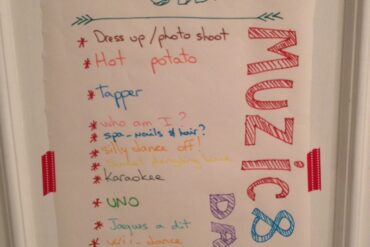 * Dress up / photo shoot
* Hot potato
* Tapper
* who am I?
* spa - nails & hair?
* silly dance off!
*
* Karaokee
* UNO
* Jaques a dit
* Wii - dance
MUZIC &
DA